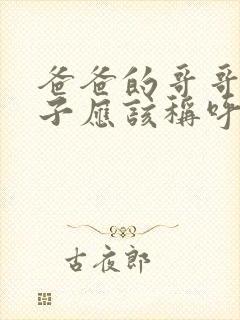 爸爸的哥哥
子应该称呼
古夜郎